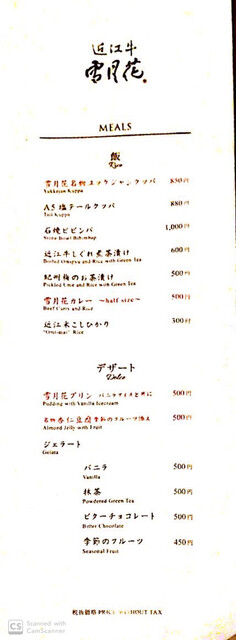 近江牛
雪月花
MEALS
飯
Rice
雪月花名物ユッケジャンクッパ 850円
Yukkejan Kuppa
A5塩テールクッパ 880円
Tail Kuppa
石焼ビビンバ 1,000円
Stone Bowl Bibimbap
近江牛しぐれ煮茶漬け 600円
Boiled Omigyu and Rice with Green Tea
紀州梅のお茶漬け 500円
Pickled Ume and Rice with Green Tea
雪月花カレー 〜half size〜 500円
Beef Curry and Rice
近江米こしひかり 300円
"Omi-mai" Rice
デザート
Dolce
雪月花プリン バニラアイスと共に 500円
Pudding with Vanilla Icecream
名物杏仁豆腐季節のフルーツ添え 500円
Almond Jelly with Fruit
ジェラート
Gelata
バニラ 500円
Vanilla
抹茶 500円
Powdered Green Tea
ビターチョコレート 500円
Bitter Chocolate
季節のフルーツ 450円
Seasonal Fruit
税抜価格 PRICE WITHOUT TAX
CS Scanned with
CamScanner